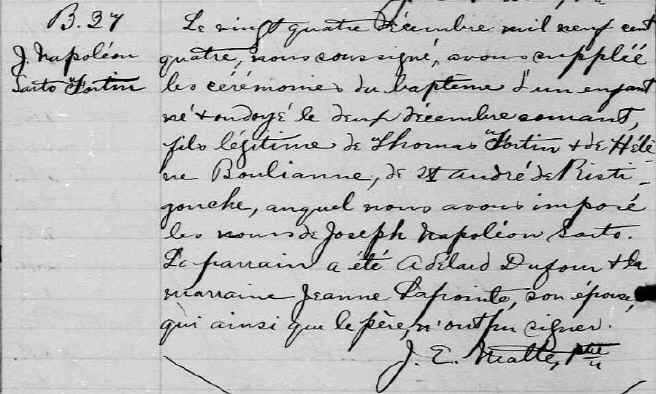 B. 27
J. Napoléon
Sarto Fortin
Le vingt quatre décembre mil neuf cent
quatre, nous soussigné, avons suppléé
les cérémonies du baptême d'un enfant
né & ondoyé le deux décembre courant,
fils légitime de Thomas Fortin & de Hélè
ne Boulianne, de St André de Risti-
gouche, auquel nous avons imposé
les noms de Joseph Napoléon Sarto.
Le parrain a été Adélard Dufour & la
marraine Jeanne Lapointe, son épouse,
qui ainsi que le père, n'ont pu signer.
J. E. Matte, Ptre